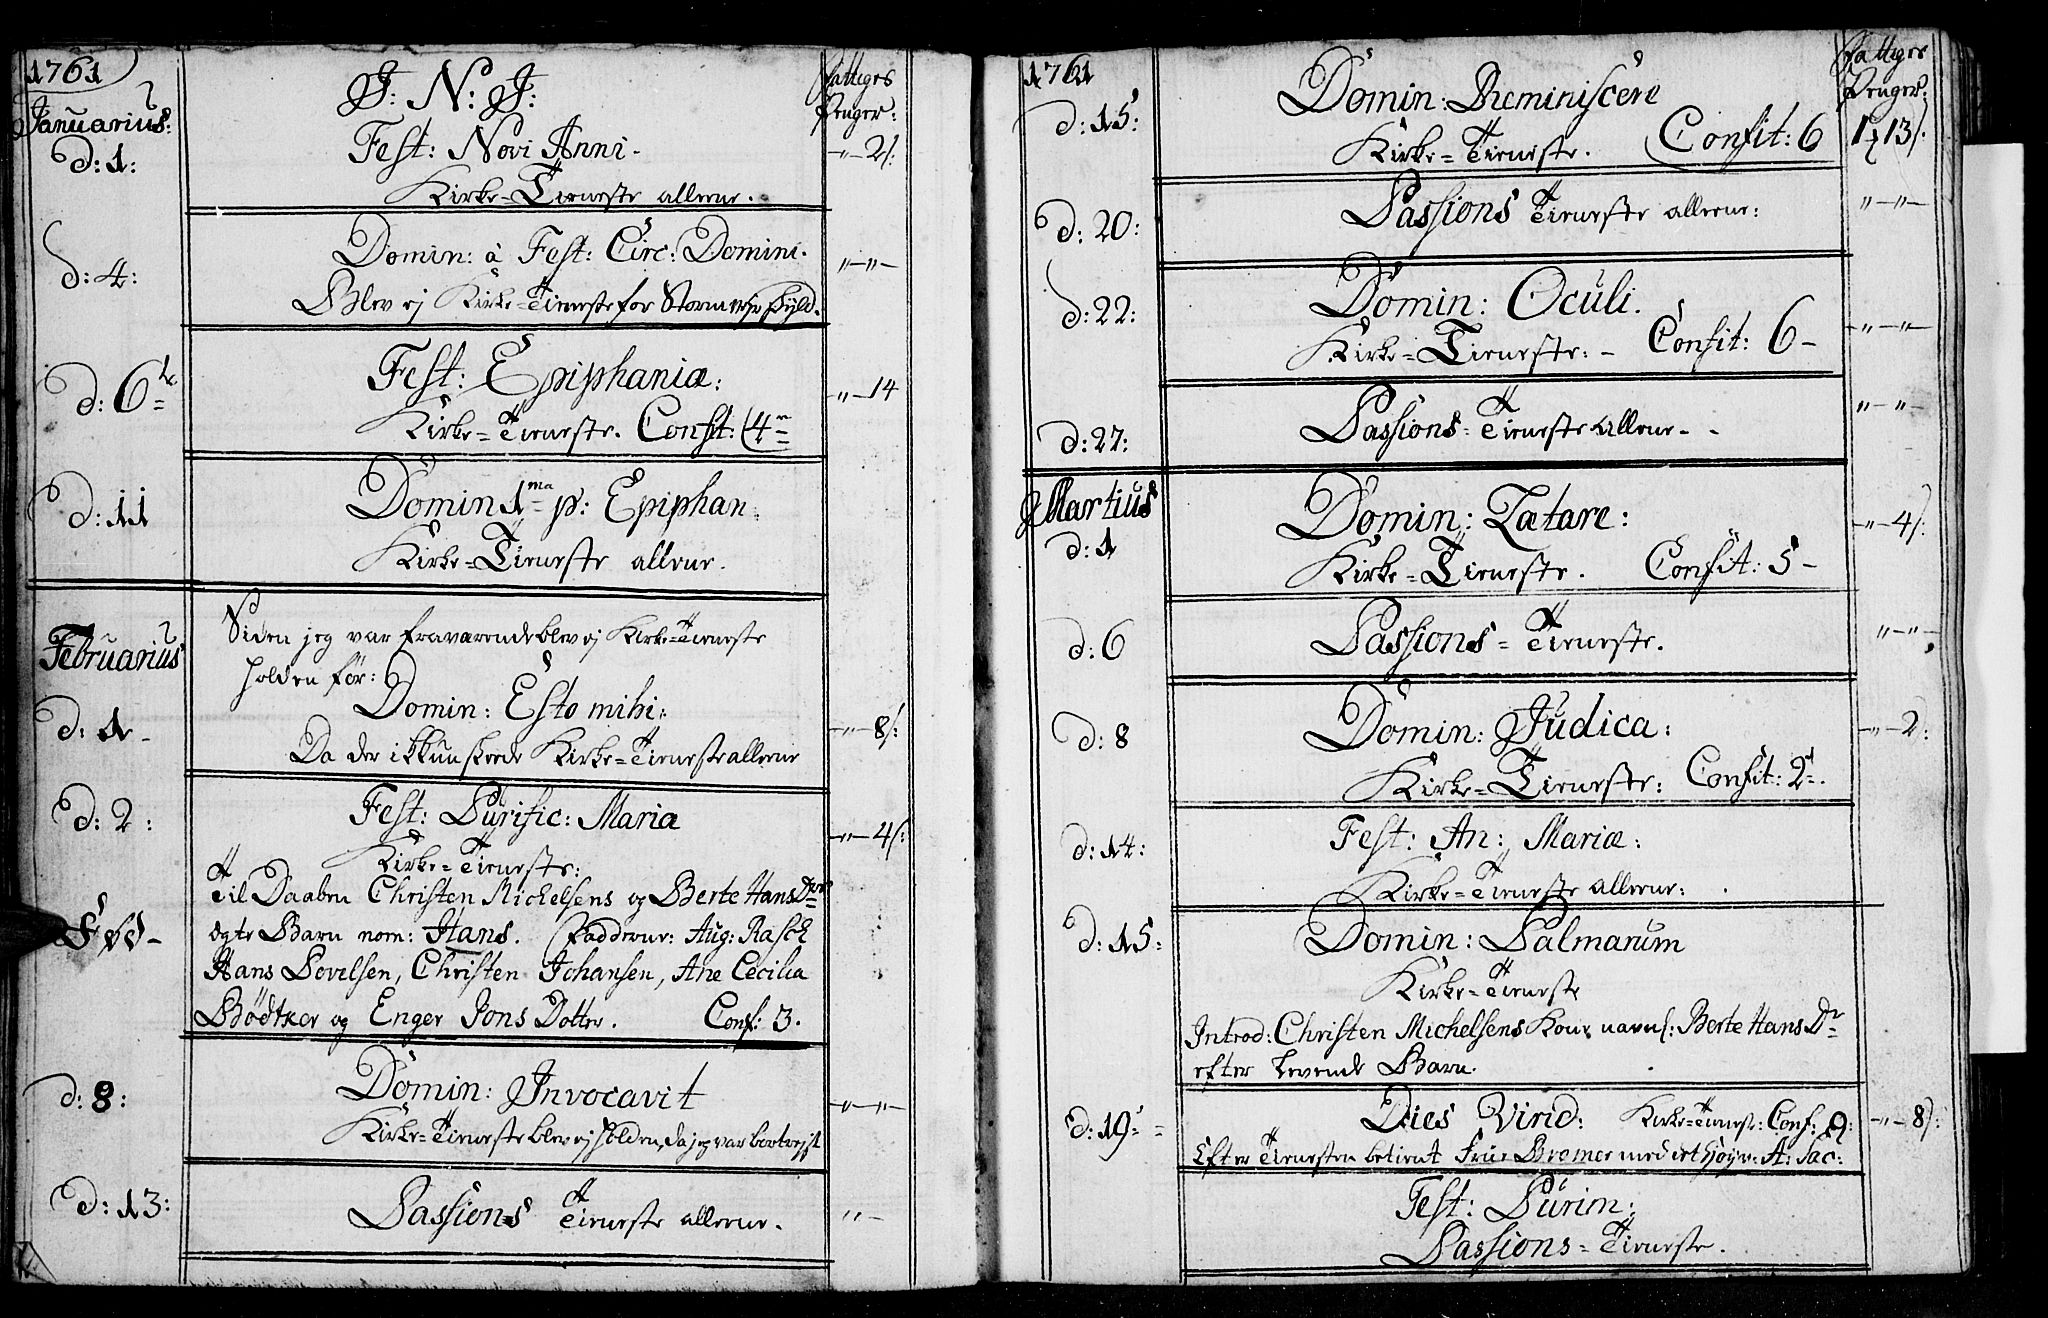 1761
J: N: J:
Fattiges
Penger:
Januarius:
d: 1:
Fest: Novi Anni.
-„-2/:
Kirke=Tieneste allene.
d: 4:
Domin: à Fest: Circ: Domini.
„-„-
Blev ej Kirke=Tieneste for Storm
d: 6te
Fest: Epiphaniæ:
-„-14
Kirke=Tieneste. Confit: 4
d: 11
Domin 1ma p: Epiphan:
Kirke=Tieneste allene.
Februarius
Siden jeg var fraværende blev ej Kirke=Tieneste
holden før:
d: 1-
Domin: Esto mihi:
-„-8/:
Da der ikkun skeede Kirke=Tieneste allene
d: 2:
Fest: Purific: Maria
-„-4/:
Kirke=Tieneste:
Til Daaben Christen Michelsens og Berte Hans Dr
ægte Barn nom: Hans. Fadderne: Aug: Rasch
Hans Povelsen, Christen Johansen, Ane Cecilia
Bödtker og Enger Jons Dotter. Conf: 3.
d: 8:
Domin: Invocavit
-„-„-
Kirke=Tieneste blev ej holden, da jeg var bortrejst
d: 13:
Passions Tieneste allene.
„-
1761
Fattiges
Penger:
d: 15:
Domin: Reminiscere
Kirke=Tieneste. Confit: 6
1 13/:
d: 20:
Passions Tieneste allene:
„-„-
d: 22:
Domin: Oculi.
Kirke=Tieneste: - Confit: 6-
-„-„-
d: 27:
Passions=Tieneste allene- -
„-„-
Martius
d: 1
Domin: Lætare:
-„-4/:
Kirke=Tieneste. Confit: 5-
d: 6
Passions=Tieneste.
„-„-
d: 8
Domin: Judica:
-„-2:
Kirke=Tieneste: Confit: 2
d: 14:
Fest: An: Mariæ:
Kirke=Tieneste allene:
d: 15:
Domin: Palmarum
Kirke=Tieneste
Introd: Christen Michelsens Kone navnl: Berte Hans Dr
efter levende Barn.
d: 19:
Dies Virid: Kirke=Tienest: Conf: 9:
-„-8/:
Efter Tienesten betient Frue Bremer med det høyv: A: Sac:
Fest: Purim:
Passions=Tieneste.